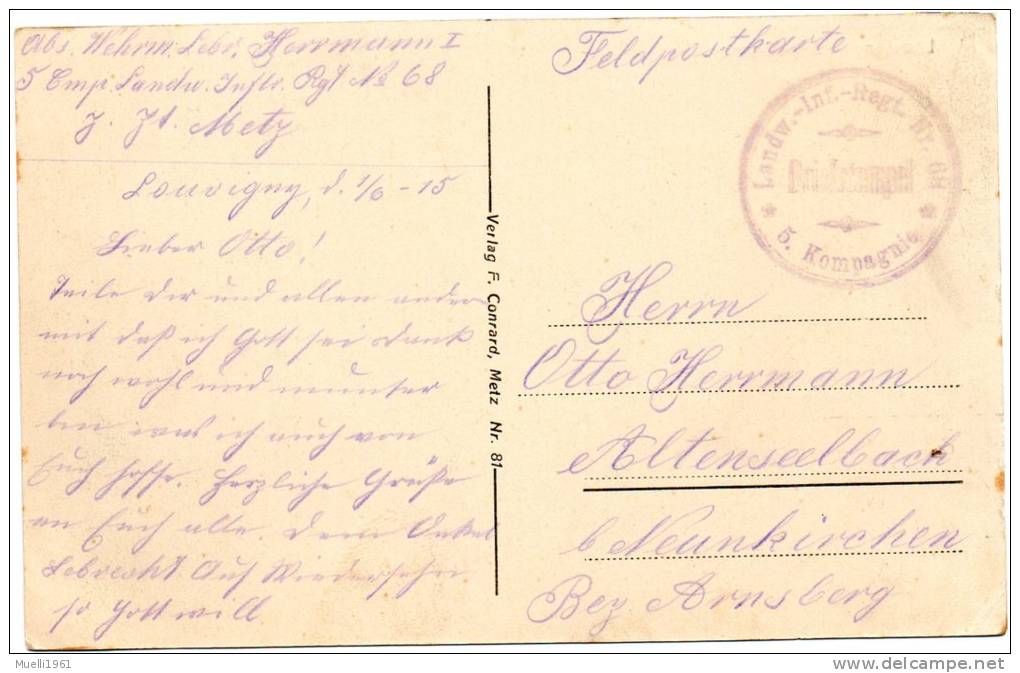 Abs. Wehrm. Lebr. Herrmann I
5 Cmp. Landw. Inftr. Rgt No 68
z. Zt. Metz
Louvigny, d. 1/6 - 15
Lieber Otto!
Teile Dir und allen andern
mit daß ich Gott sei Dank
noch wohl und munter
bin was ich auch von
Euch hoffe. Herzliche Grüße
an Euch alle. Dein Onkel
Lebrecht Auf Wiedersehn
so Gott will
Verlag F. Conrard, Metz Nr. 81
Feldpostkarte
Landw.-Inf.-Regt. Nr. 68
Briefstempel
5. Kompagnie
Herrn
Otto Herrmann
Altenseelbach
b Neunkirchen
Bez Arnsberg
Muelli1961
delcampe.net